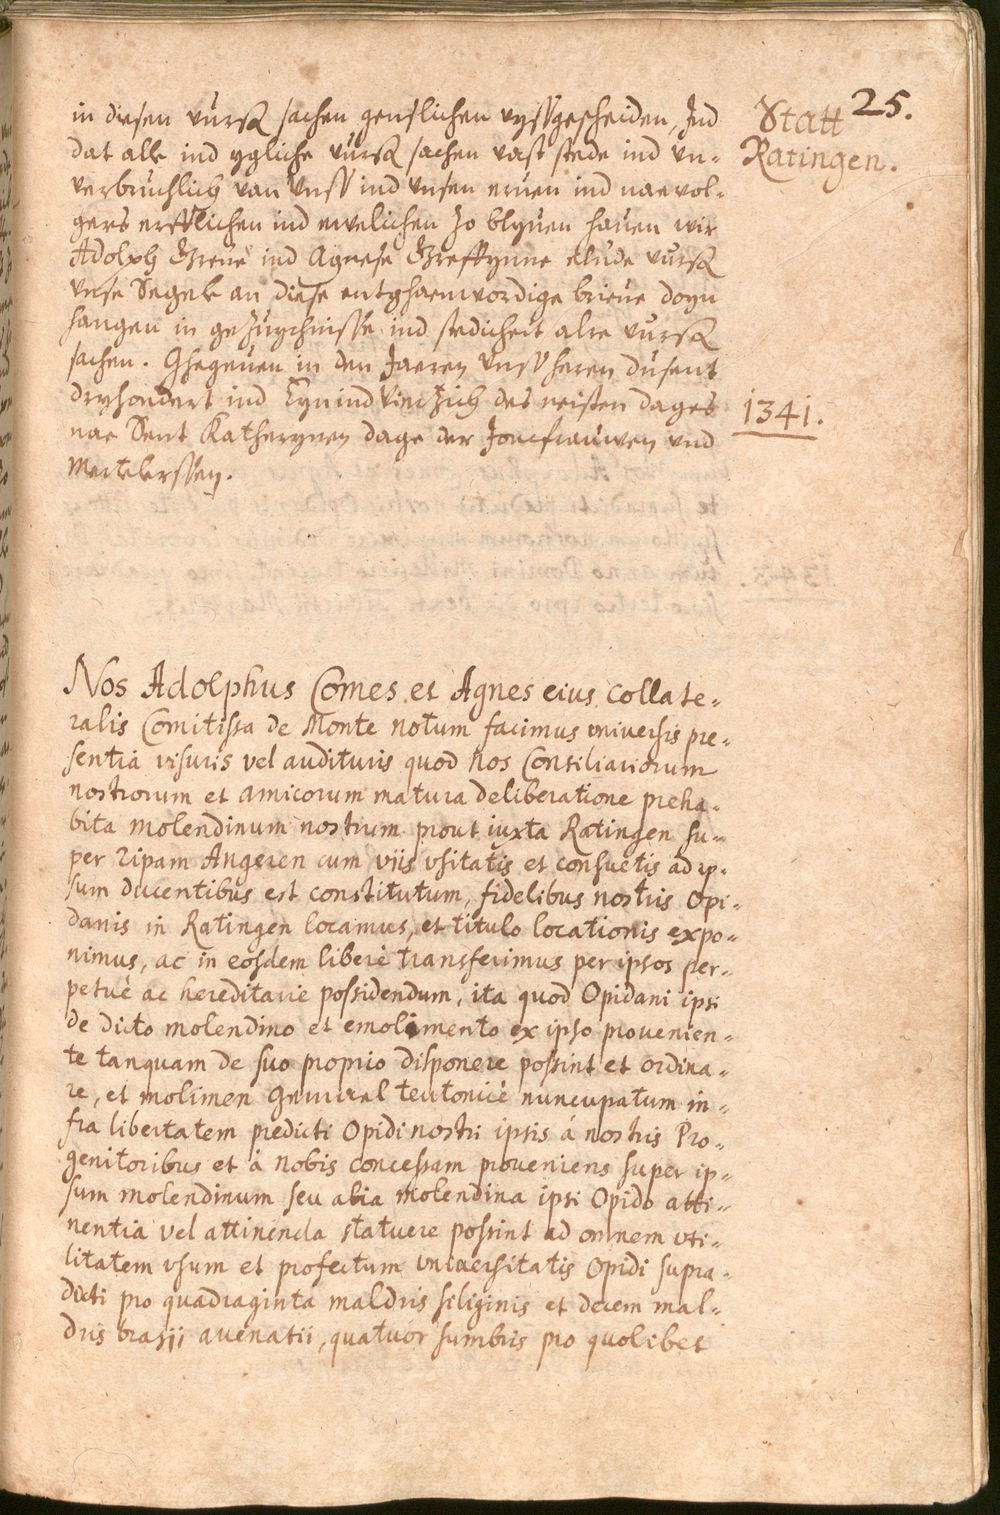 25.
Statt
Ratingen.
in diesen vursȥ sachen genslichen vyssgescheiden, Ind
dat alle ind ygliche vursȥ sachen vast stede ind vn-
verbruchlich van Vnss ind vnsen eruen ind naevol-
gers erfflichen ind ewelichen zo blyuen hauen wir
Adolph Greue ind Agnese Greffynne elude vursȥ
vnse Segele an diese entghaenwordige brieue doyn
hangen in gezuychnisse ind stedicheit alre vursȥ
sachen. Ghegeuen in den Jaeren Vnss heren dusent
dryhondert ind Eyn ind Viertzich des neisten dages
nae Sent Katherynen dage der Joncfrauwen vnd
Mertelerssen.
1341.
Nos Adolphus Comes et Agnes eius collate-
ralis Comitissa de Monte notum facimus vniversis pre-
sentia visuris vel audituris quod Nos Consiliariorum
nostrorum et amicorum matura deliberatione preha-
bita molendinum nostrum prout iuxta Ratingen su-
per ripam Angeren cum viis vsitatis et consuetis ad ip-
sum ducentibus est constitutum, fidelibus nostris Opi-
danis in Ratingen locamus, et titulo locationis expo-
nimus, ac in eosdem liberè transferimus per ipsos per-
petuè ac hereditarie possidendum, ita quod Opidani ipsi
de dicto molendino et emolimento ex ipso provenien-
te tanquam de suo proprio disponere possint et ordina-
re, et molimen Gemael teutonicè nuncupatum in-
fra libertatem predicti Opidi nostri ipsis a nostris Pro-
genitoribus et à nobis concessam proveniens super ip-
sum molendinum seu alia molendina ipsi Opido atti-
nentia vel attinenda statuere possint ad omnem vti-
litatem vsum et profectum vniversitatis Opidi supra-
dicti pro quadraginta maldris siliginis et decem mal-
dris brasij auenatii, quatuor sumbris pro quolibet